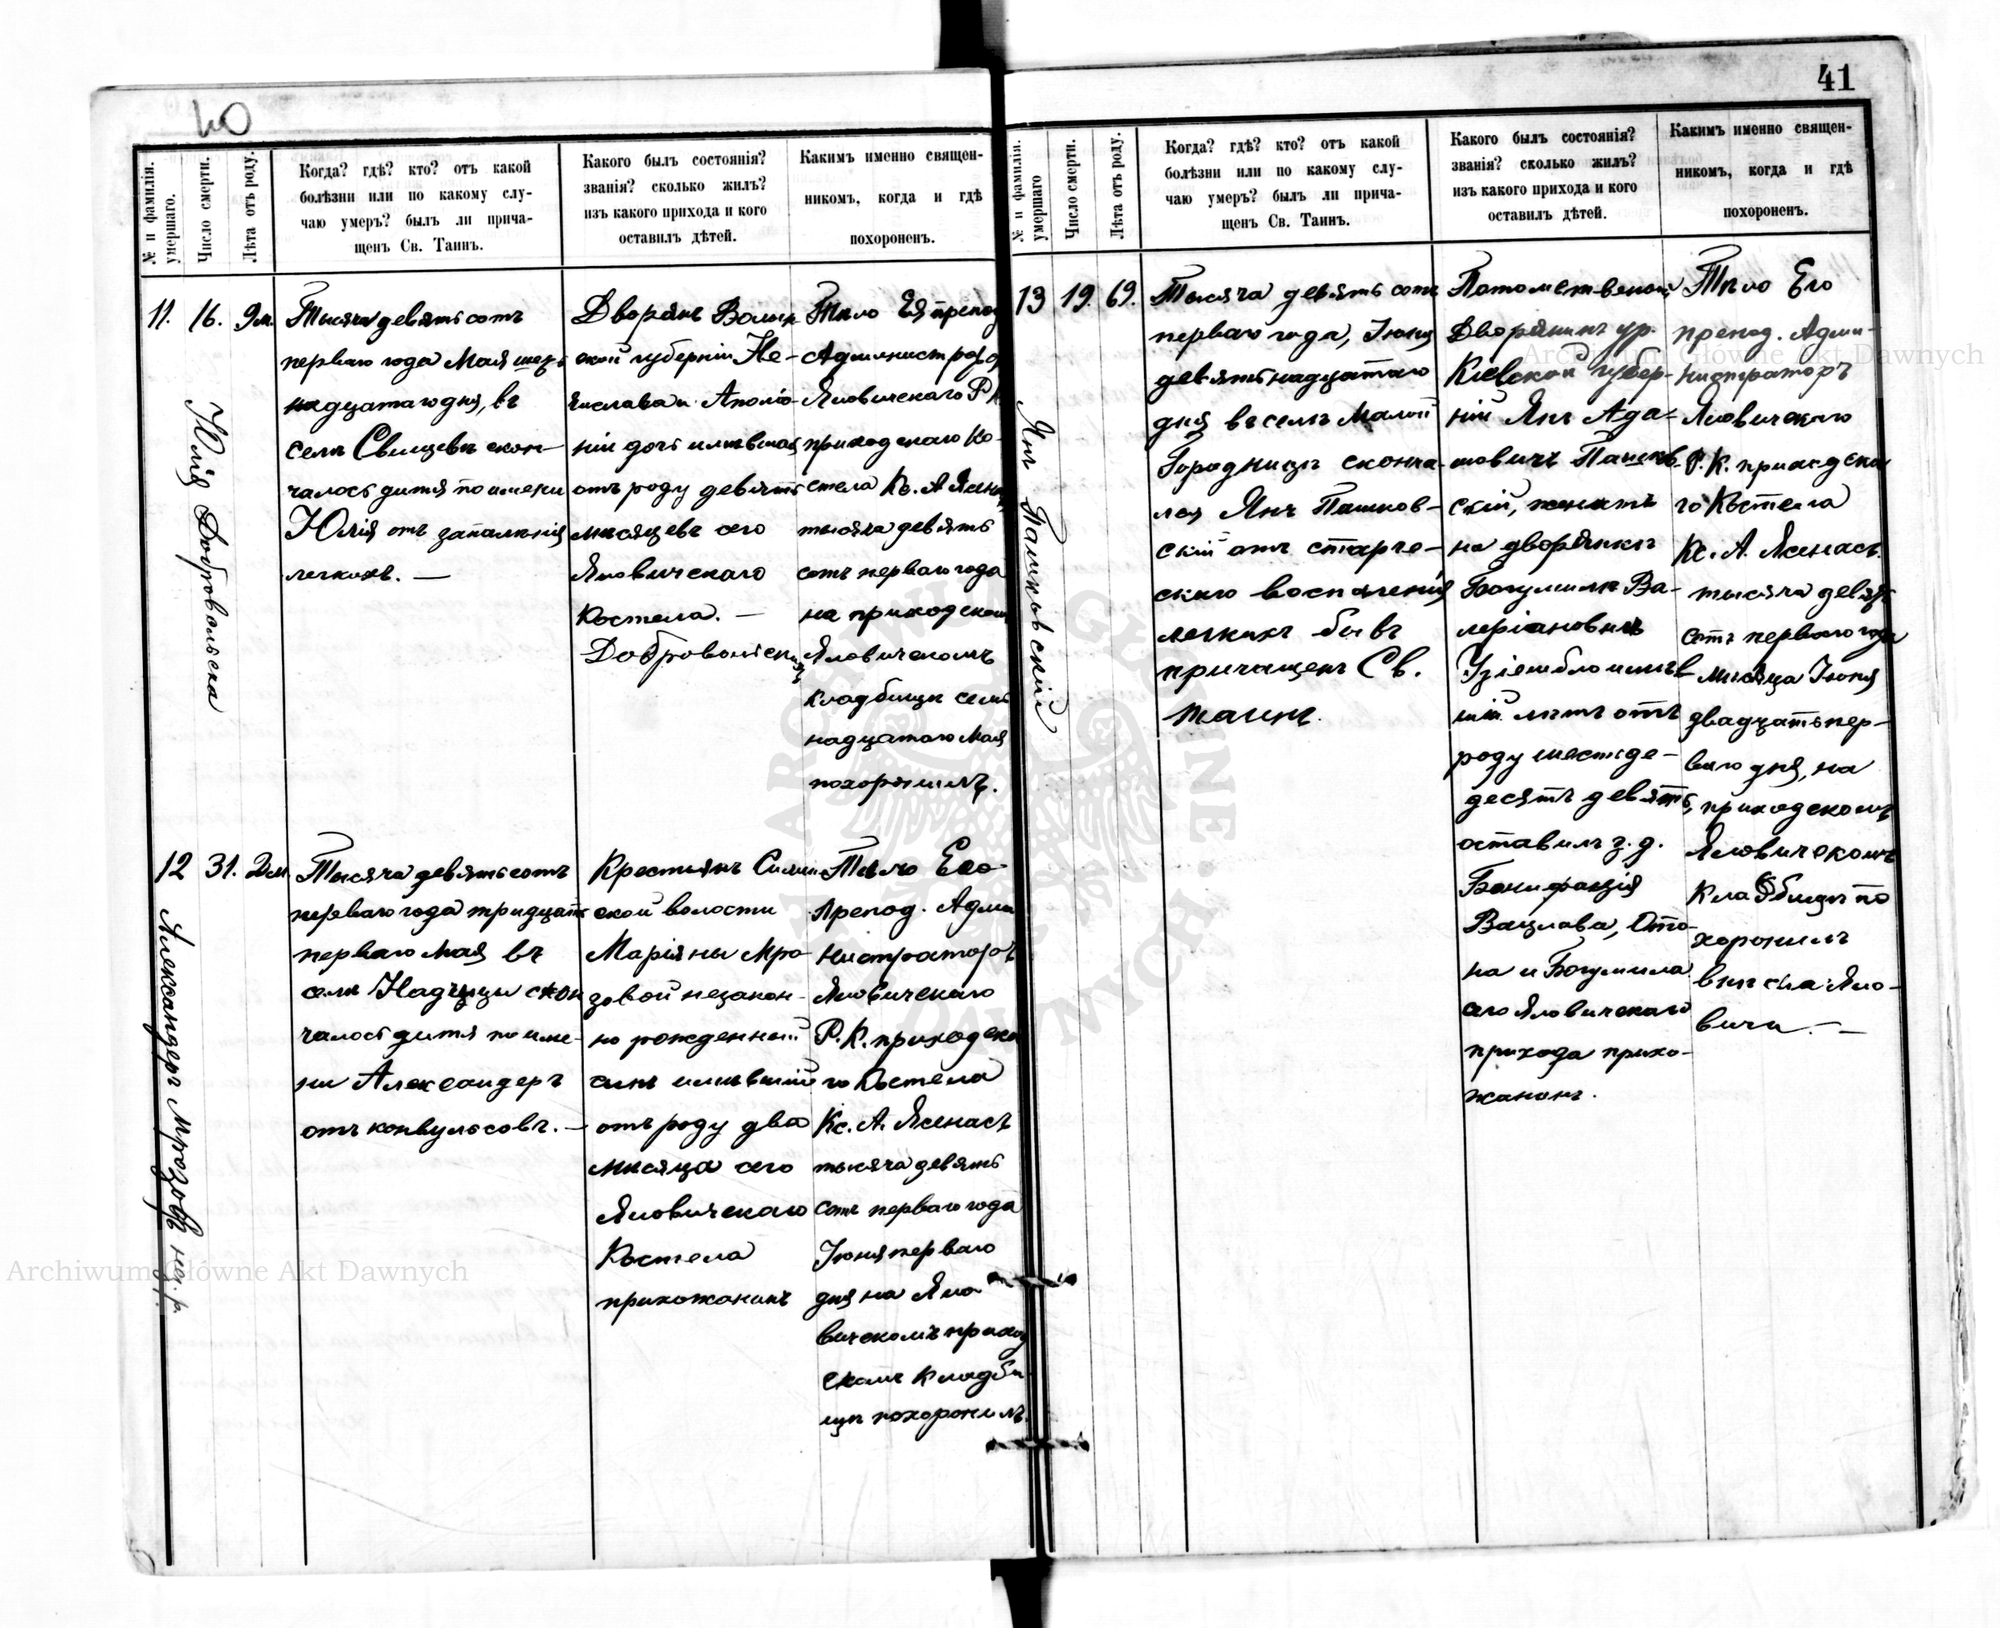 40
№ и фамилія умершаго.
Число смерти.
Лѣта отъ роду.
Когда? гдѣ? кто? отъ какой
болѣзни или по какому слу-
чаю умеръ? былъ ли прича-
щенъ Св. Таинъ.
Какого былъ состоянія?
званія? сколько жилъ?
изъ какого прихода и кого
оставилъ дѣтей.
Каким​ъ именно священ-
никомъ, когда и гдѣ
похороненъ.
11.
16.
9 м.
Юлія Добровольска
Тысяча девятьсотъ
перваго года Мая шест
надцатаго дня, въ
селѣ Свищевѣ скон-
чалось дитя по имени
Юлія отъ запаленія
легкихъ. —
Дворянъ Волын
ской губерніи Не-
числава и Аполіо-
ніи дочь имѣвшая
отъ роду девять
мѣсяцевъ сего
Яловичскаго
Костела. —
Добровольских
Тѣло Ея препод
Администратор
Яловичскаго Р К
приходскаго Ко-
стела Кс. А Ясен
тысяча девять
сотъ перваго года
на приходском
Яловичскомъ
кладбищѣ сем
надцатаго Мая
похоронилъ.
12
31.
2 м.
Александеръ Мрозовъ
Тысяча девятьсотъ
перваго года тридцат
перваго Мая въ
селѣ Надчицы скон
чалось дитя по име-
ни Александеръ
отъ конвульсовъ. —
Крестьянъ
ской волости
Маріяны Мро-
зовой незакон-
но рожденный
сынъ имѣвшій
отъ роду два
мѣсяца сего
Яловичскаго
Костела
прихожанинъ
Тѣло Его
Препод. Адми
нистраторъ
Яловичскаго
Р. К. приходска
го Костела
Кс. А. Ясенасъ
тысяча девять
сотъ перваго года
Іюня перваго
дня на Яло
вичскомъ приход
скомъ кладби
щѣ похоронилъ.
41
№ и фамилія умершаго
Число смерти.
Лѣта отъ роду.
Когда? гдѣ? кто? отъ какой
болѣзни или по какому слу-
чаю умеръ? былъ ли прича-
щенъ Св. Таинъ.
Какого былъ состоянія?
званія? сколько жилъ?
изъ какого прихода и кого
оставилъ дѣтей.
Какимъ именно священ-
никомъ, когда и гдѣ
похороненъ.
13
19.
69.
Янъ Пашковскій
Тысяча девять сотъ
перваго года, Іюня
девятьнадцатаго
дня въ селѣ Малой
Городницѣ сконча-
лся Янъ Пашков-
скій отъ старче-
скаго воспаленія
легкихъ бывъ
причащенъ Св.
таинъ.
Потомственный
Дворянинъ ур.
Кіевской губер-
ніи Янъ Ада-
мовичъ Пашков-
скій, женатъ
на дворянкѣ
Богумилѣ Ва-
леріановнѣ
имѣв
шій лѣтъ отъ
роду шестьде-
десятъ девять,
оставилъ з. д.
Бонифація
Вацлава, Ото-
на и Богумила
сего Яловичскаго
прихода прихо-
жанинъ.
Тѣло Его
препод. Адми-
нистраторъ
Яловичскаго
Р. К. приходска
го Костела
Кс. А. Ясенасъ.
тысяча девять
сотъ перваго года
мѣсяца Іюня
двадцать пер-
ваго дня, на
приходскомъ
Яловичскомъ
кладбищѣ по
хоронилъ
села Яло-
вичи. —
Archiwum Główne Akt Dawnych
Archiwum Główne Akt Dawnych
ARCHIWUM GŁÓWNE AKT DAWNYCH